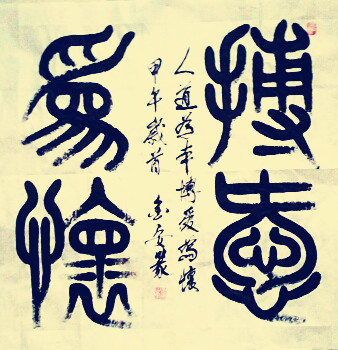 博愛
爲懷
人道為本博愛為懷
甲午歲首